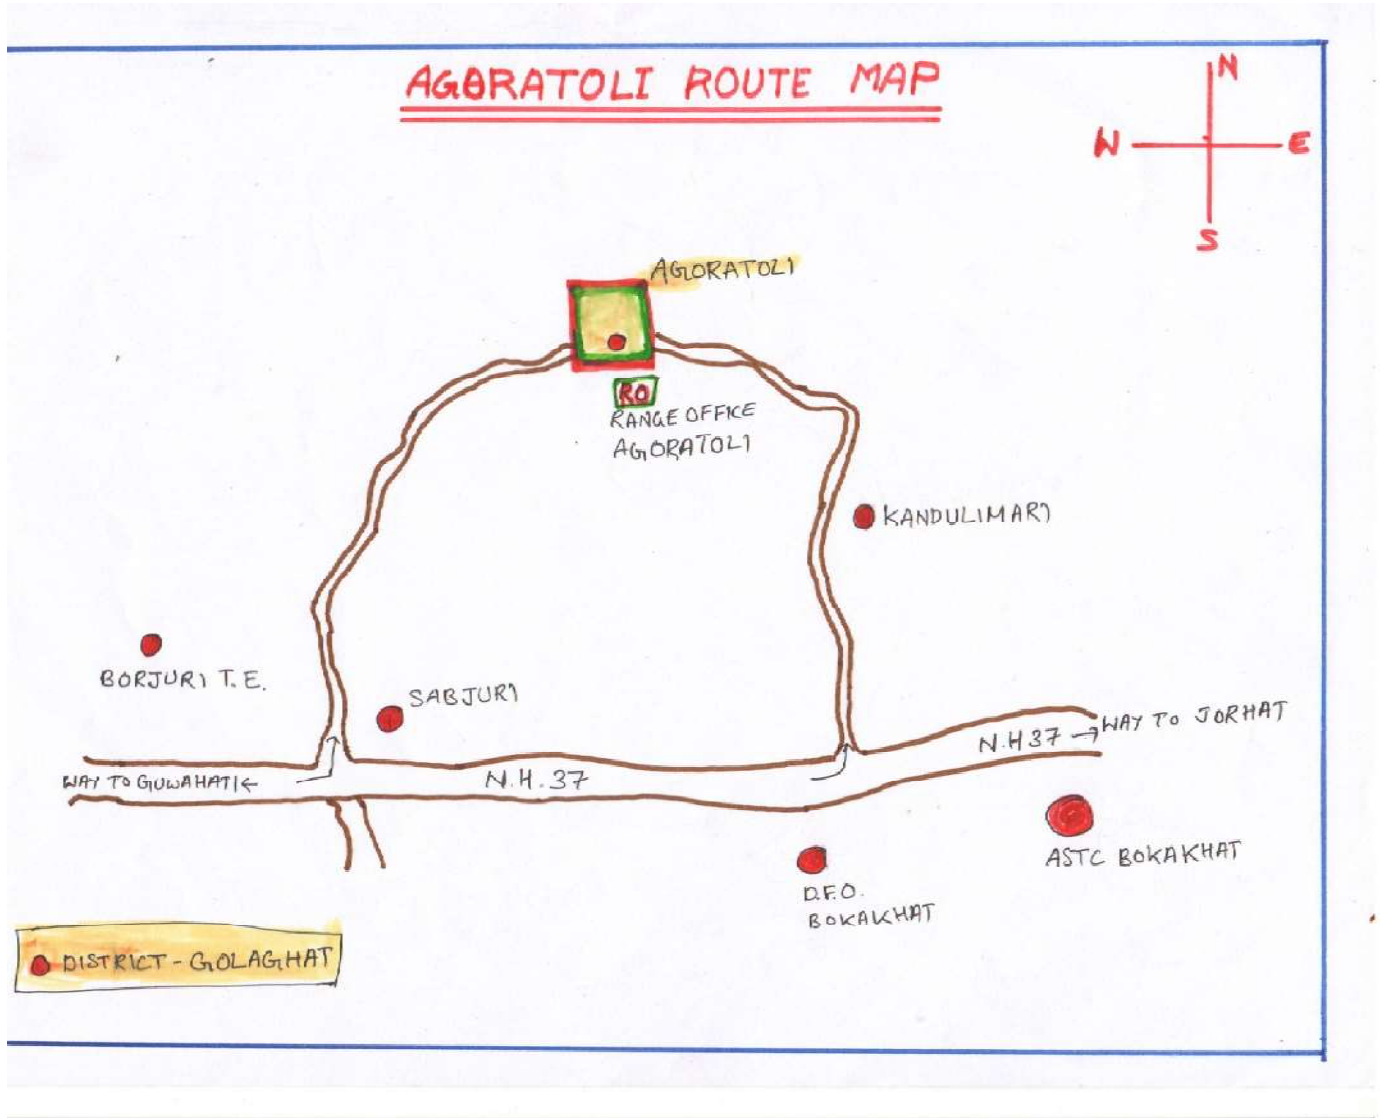 AGORATOLI ROUTE MAP
N
W E
S
AGORATOLI
RO
RANGE OFFICE
AGORATOLI
KANDULIMARI
BORJURI T.E.
SABJURI
WAY TO JORHAT
N.H 37
WAY TO GUWAHATI
N.H.37
ASTC BOKAKHAT
D.F.O.
BOKAKHAT
DISTRICT - GOLAGHAT